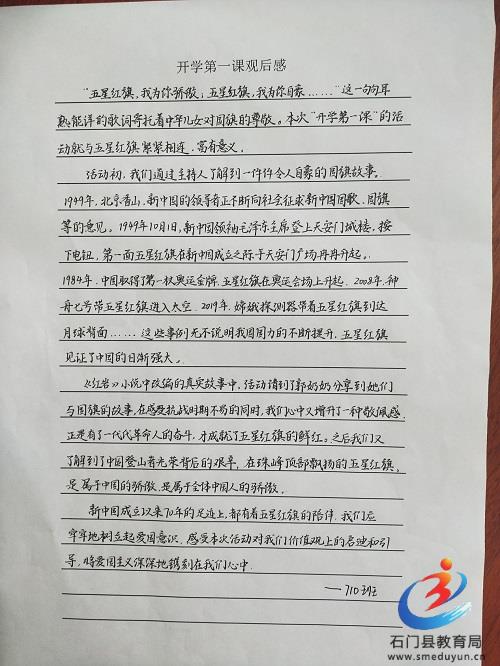 开学第一课观后感
“五星红旗,我为你骄傲;五星红旗,我为你自豪……”这一句句耳
熟能详的歌词寄托着中华儿女对国旗的尊敬。本次“开学第一课”的活
动就与五星红旗紧紧相连,富有意义。
活动初,我们通过主持人了解到一件件令人自豪的国旗故事。
1949年,北京香山,新中国的领导者正不断向社会征求新中国国歌、国旗
等的意见。1949年10月1日,新中国领袖毛泽东主席登上天安门城楼,按
下电钮,第一面五星红旗在新中国成立之际于天安门广场冉冉升起。
1984年,中国取得了第一枚奥运金牌,五星红旗在奥运会场上升起。2008年,神
舟七号带五星红旗进入太空。2019年,嫦娥探测器带着五星红旗到达
月球背面……这些事例无不说明我国国力的不断提升,五星红旗
见证了中国的日渐强大。
《红岩》小说中改编的真实故事中,活动请到了郭奶奶分享到她们
与国旗的故事,在感受抗战时期不易的同时,我们心中又增升了一种敬佩感。
正是有了一代代革命人的奋斗,才成就了五星红旗的鲜红。之后我们又
了解到了中国登山者光荣背后的艰辛,在珠峰顶部飘扬的五星红旗,
是属于中国的骄傲,是属于全体中国人的骄傲。
新中国成立以来70年的足迹上,都有着五星红旗的陪伴,我们应
牢牢地树立起爱国意识,感受本次活动对我们价值观上的启迪和引
导,将爱国主义深深地镌刻在我们心中。
——710班
石门县教育局
www.smeduyun.cn